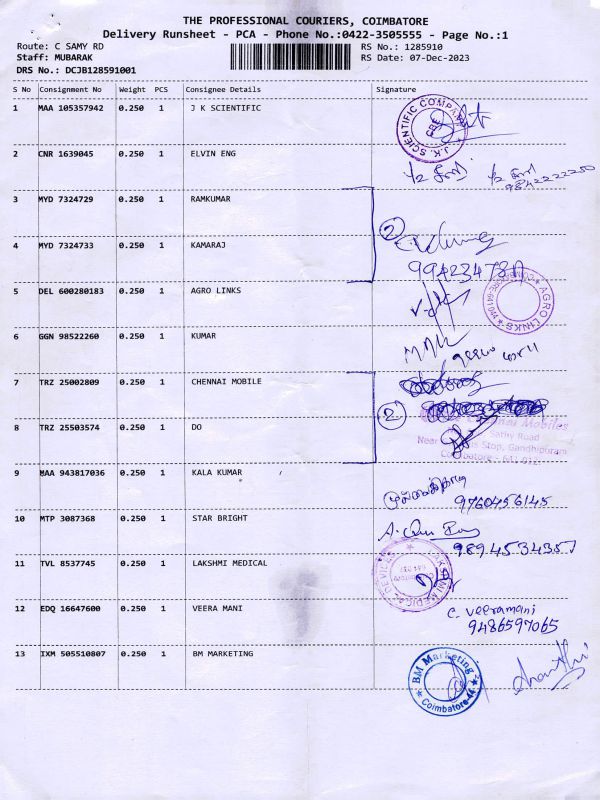 THE PROFESSIONAL COURIERS, COIMBATORE
Delivery Runsheet - PCA - Phone No.:0422-3505555 - Page No.:1
Route: C SAMY RD RS No.: 1285910
Staff: MUBARAK RS Date: 07-Dec-2023
DRS No.: DCJB128591001
S No Consignment No Weight PCS Consignee Details Signature
1 MAA 105357942 0.250 1 J K SCIENTIFIC
J.K. SCIENTIFIC COMPANY CBE
2 CNR 1639045 0.250 1 ELVIN ENG
9842222250
3 MYD 7324729 0.250 1 RAMKUMAR
2
4 MYD 7324733 0.250 1 KAMARAJ
5 DEL 600280183 0.250 1 AGRO LINKS
AGRO LINKS
6 GGN 98522260 0.250 1 KUMAR
7 TRZ 25002809 0.250 1 CHENNAI MOBILE
2
8 TRZ 25503574 0.250 1 DO
Mobiles
Sathy Road
Near Stop, Gandhipuram
Coimbatore - 641 012
9 MAA 943817036 0.250 1 KALA KUMAR
9760456145
10 MTP 3087368 0.250 1 STAR BRIGHT
9894534357
11 TVL 8537745 0.250 1 LAKSHMI MEDICAL
LAKSHMI MEDICAL DEVICES
12 EDQ 16647600 0.250 1 VEERA MANI
C. Veeramani
9486597065
13 IXM 505510807 0.250 1 BM MARKETING
BM Marketing
Coimbatore-44